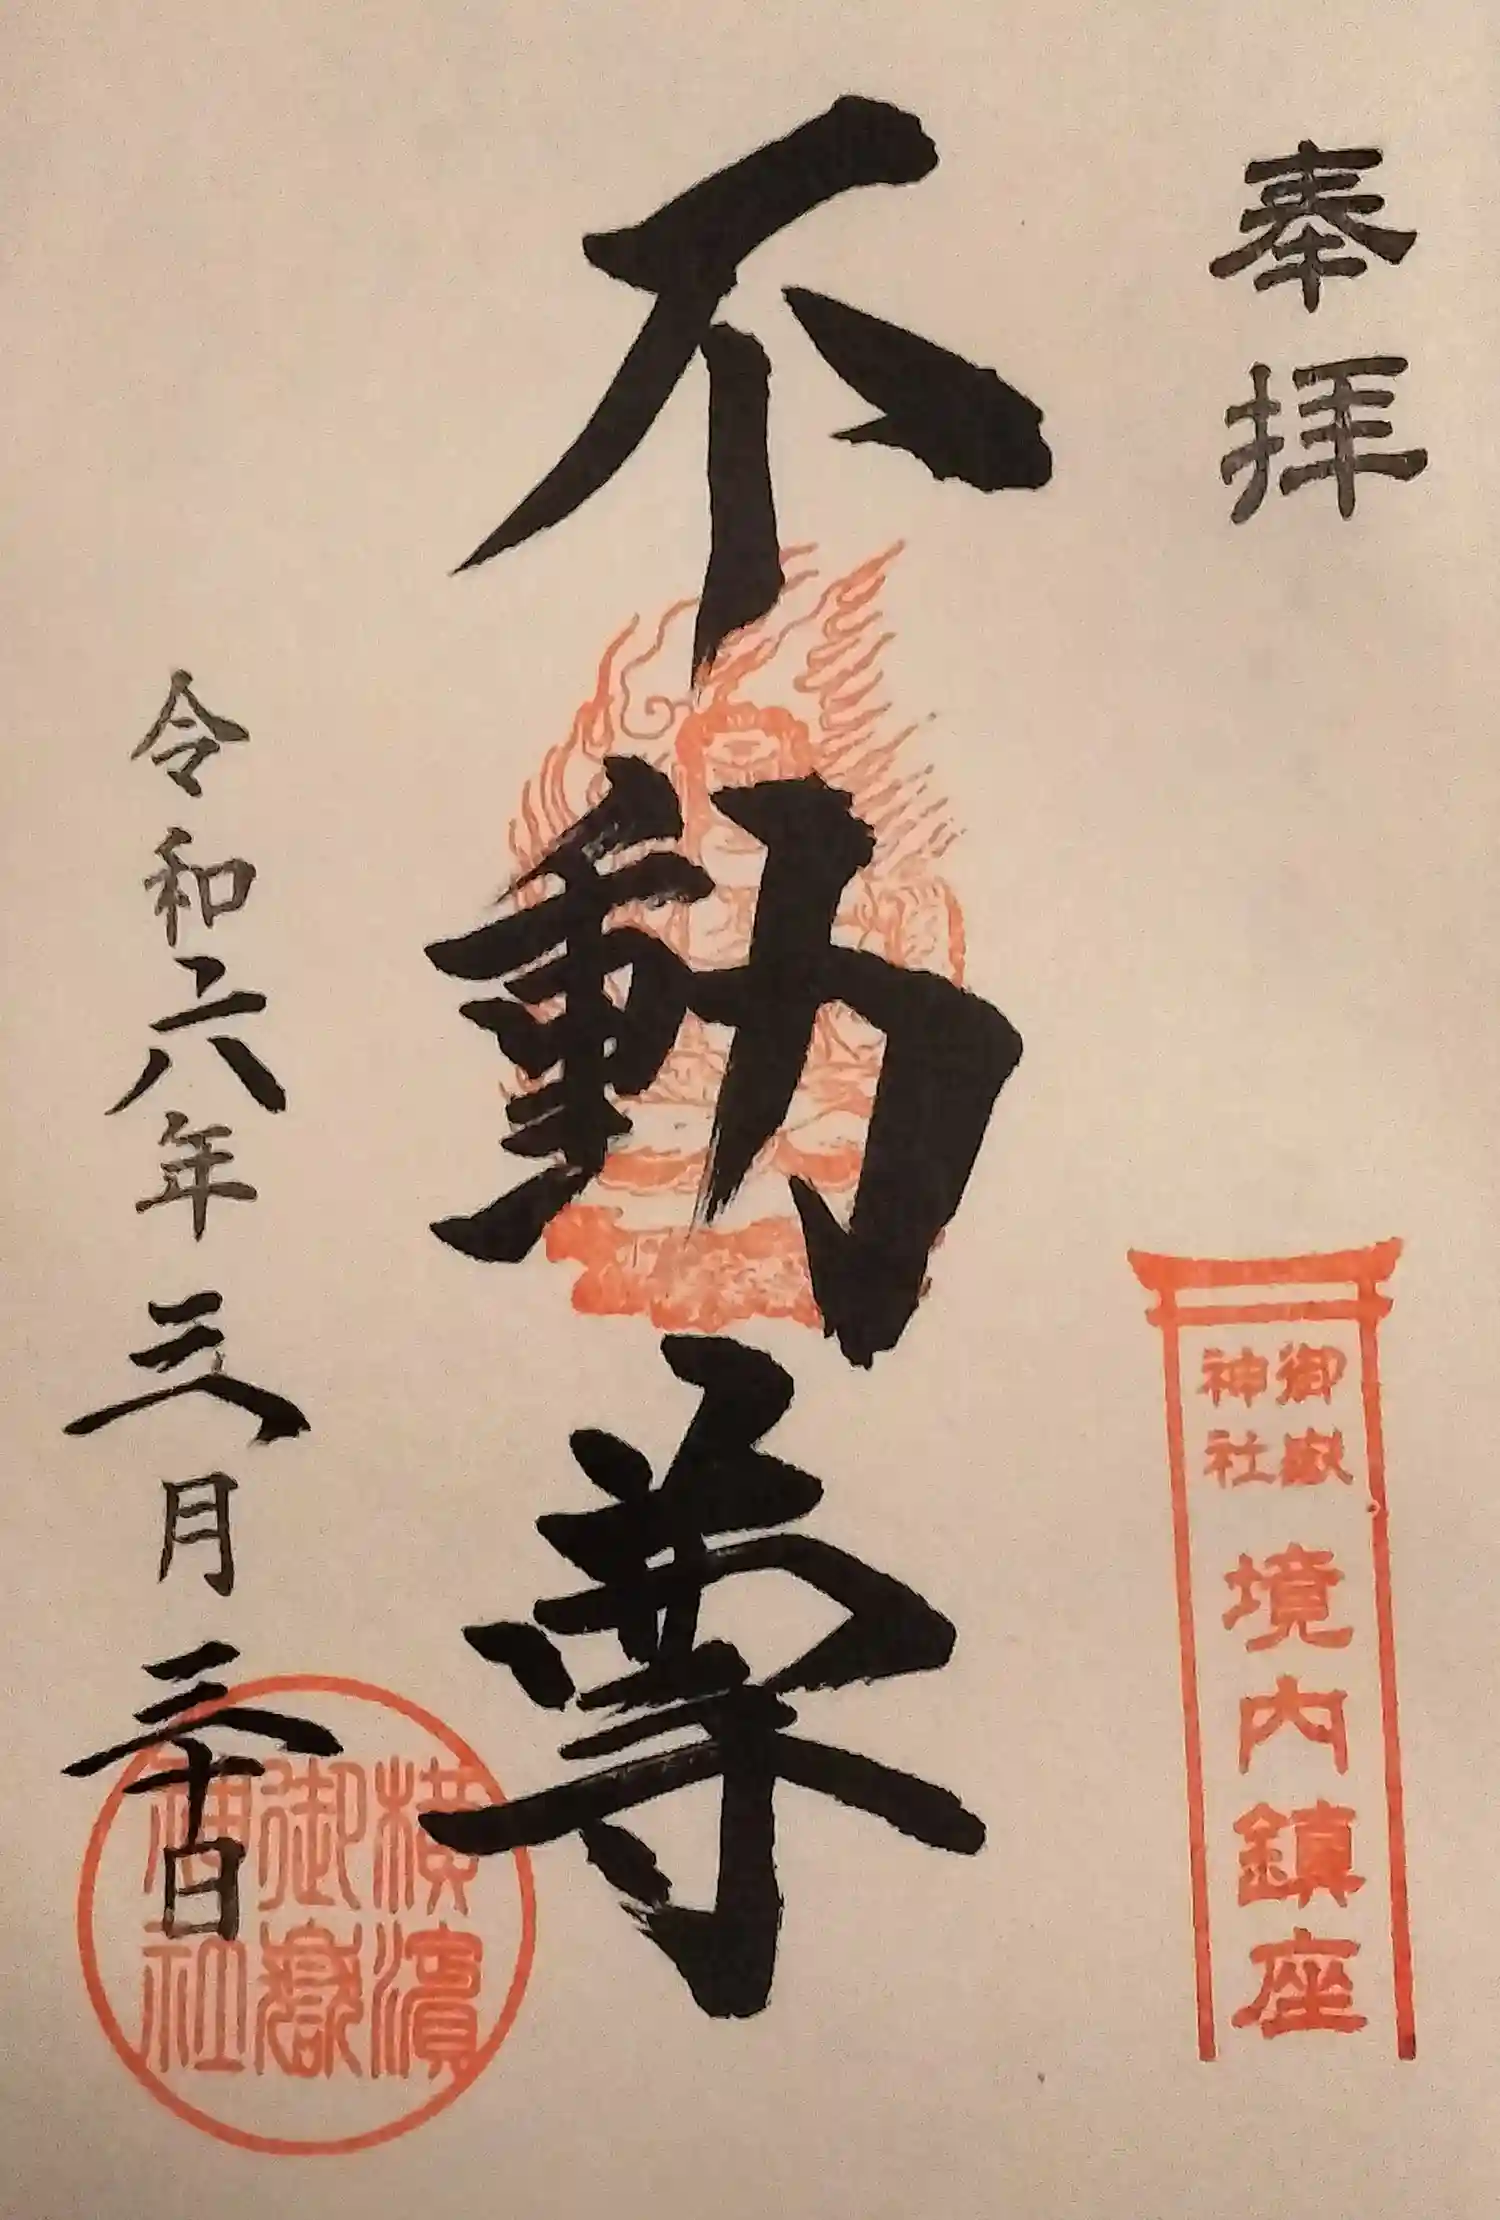 奉拝
御嶽
神社
境内鎮座
不動尊
令和六年三月三十日
横濱
御嶽
神社